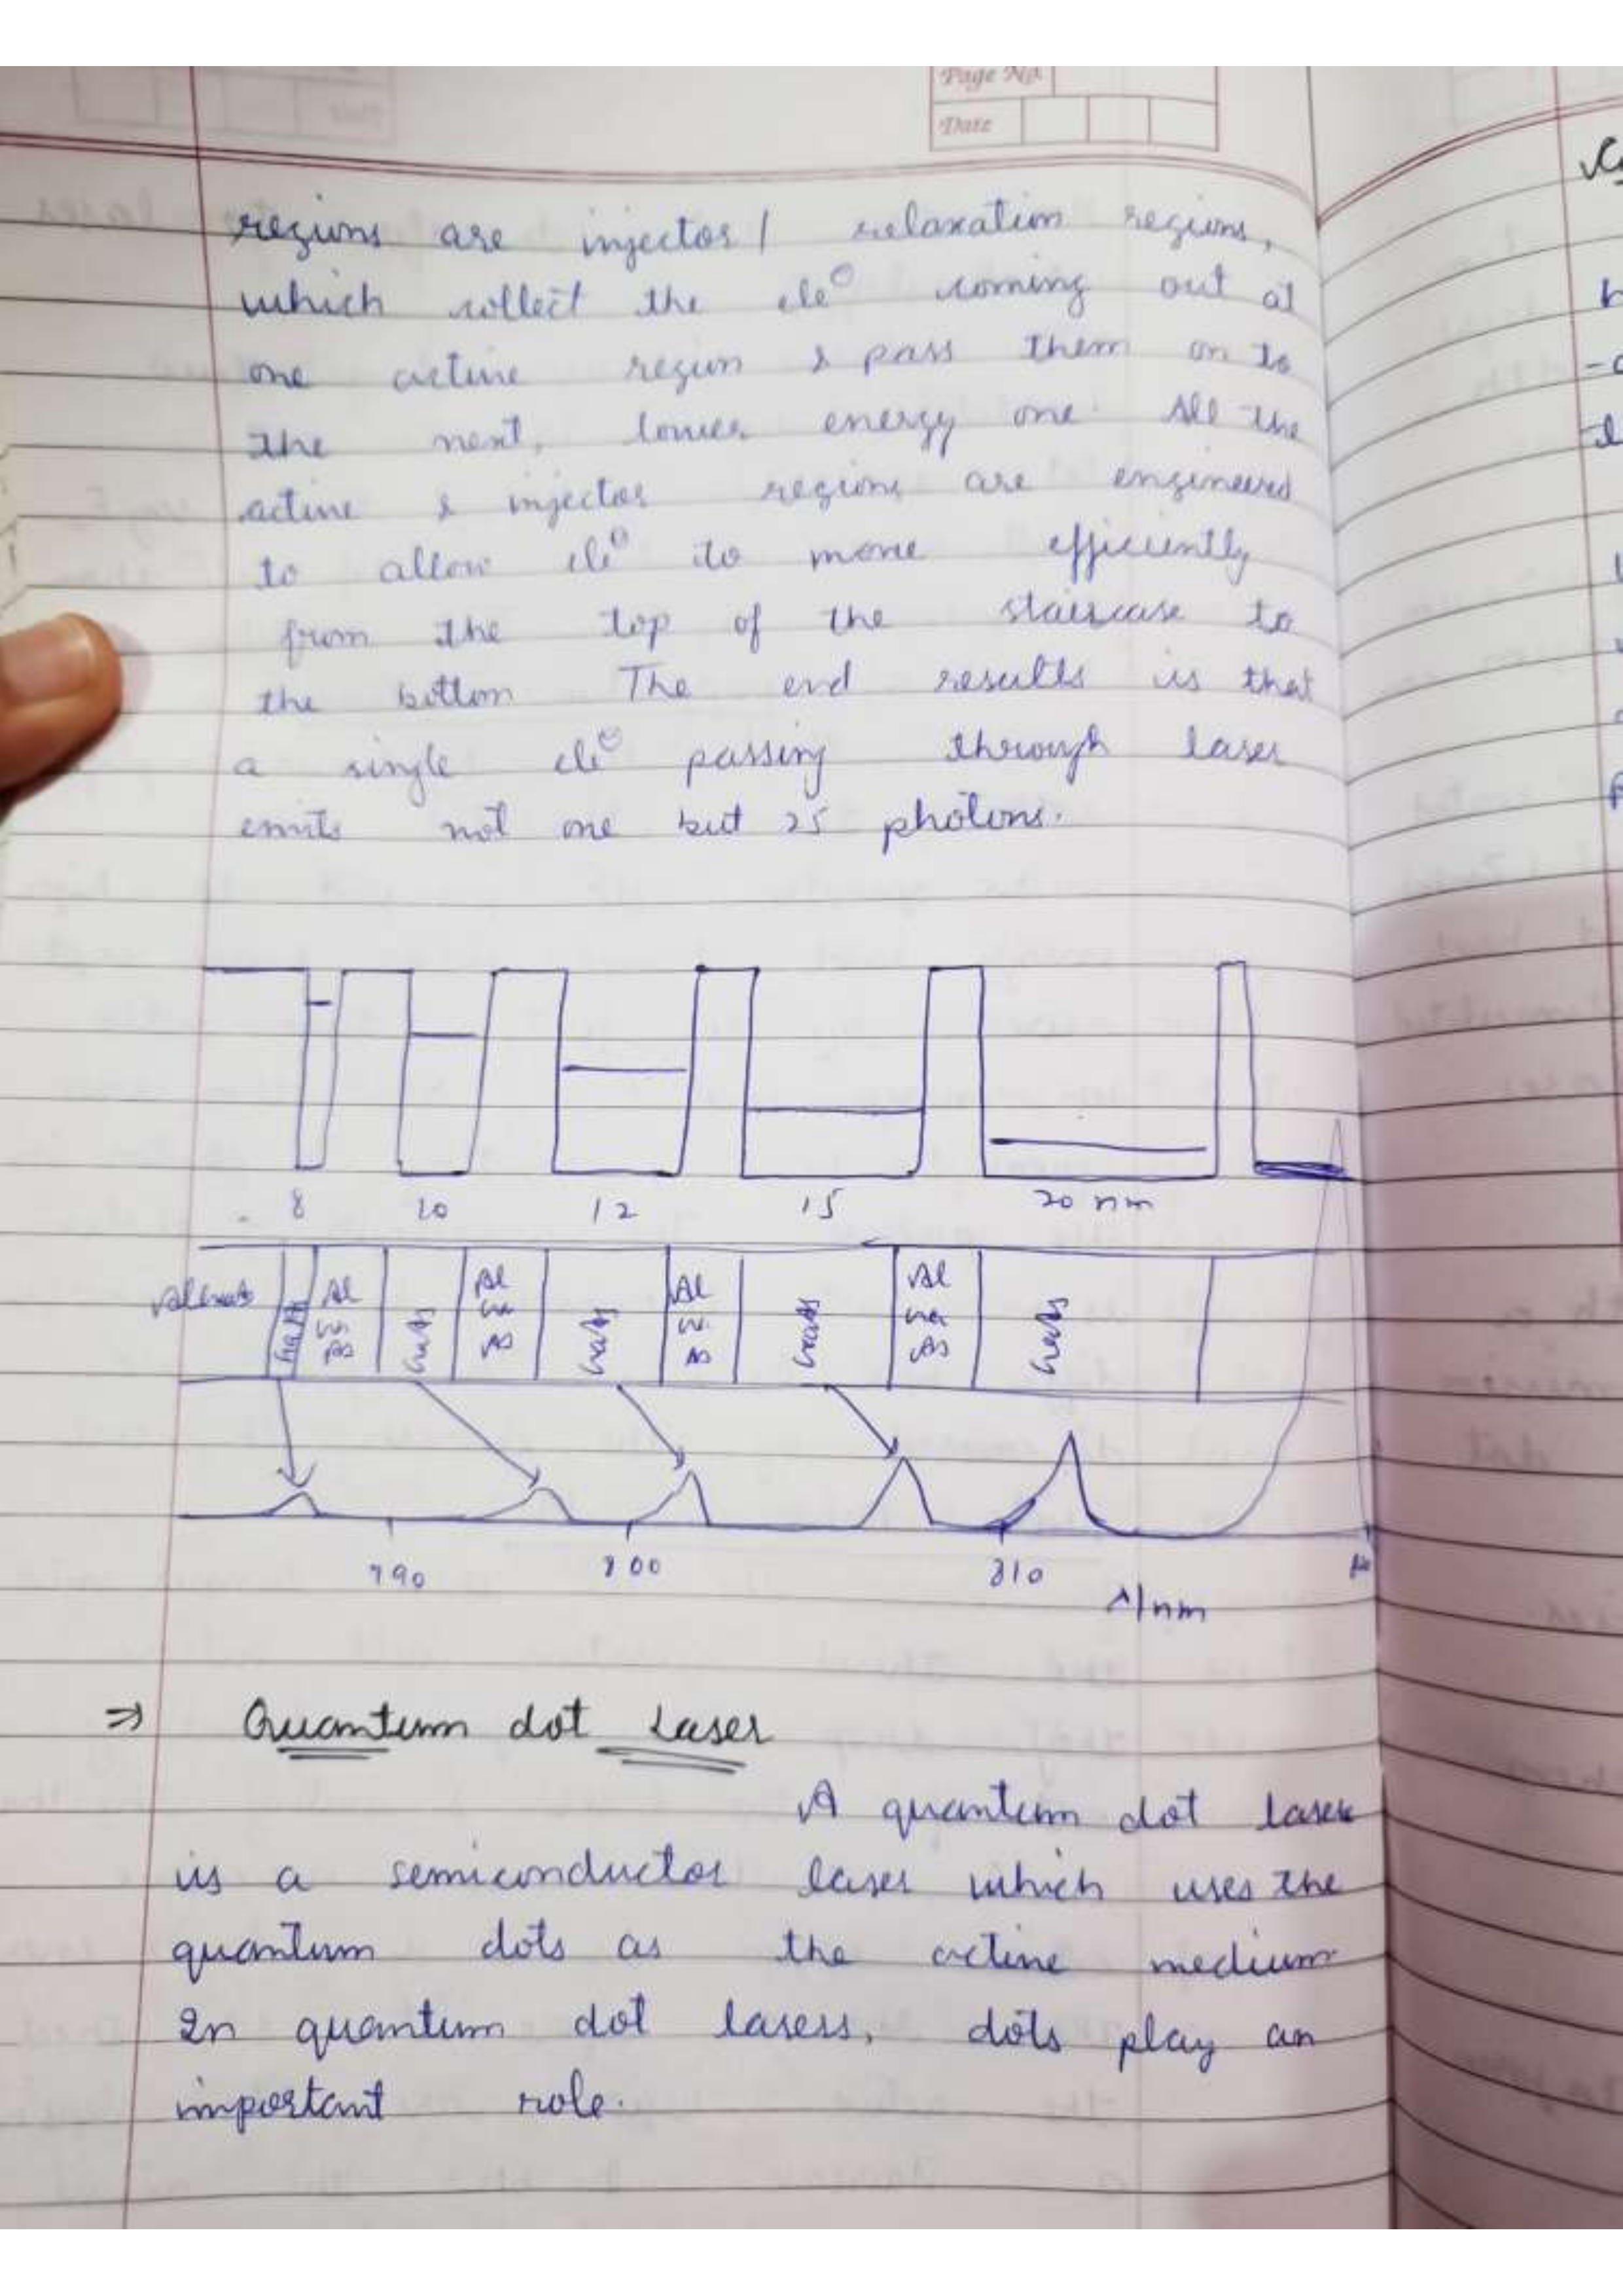 Page No.
Date
regions are injector / relaxation regions,
which collect the ele⊖ coming out at
one active region & pass them on to
the next, lower energy one. All the
active & injector regions are engineered
to allow ele⊖ to move efficiently
from the top of the staircase to
the bottom The end results is that
a single ele⊖ passing through laser
emits not one but 25 photons.
8 10 12 15 20 nm
AlGaAs GaAs Al Ga As GaAs Al Ga As GaAs Al Ga As GaAs Al Ga As GaAs
790 800 810
λ/nm
⇒ Quantum dot Laser
A quantum dot laser
is a semiconductor laser which uses the
quantum dots as the active medium
In quantum dot lasers, dots play an
important role.